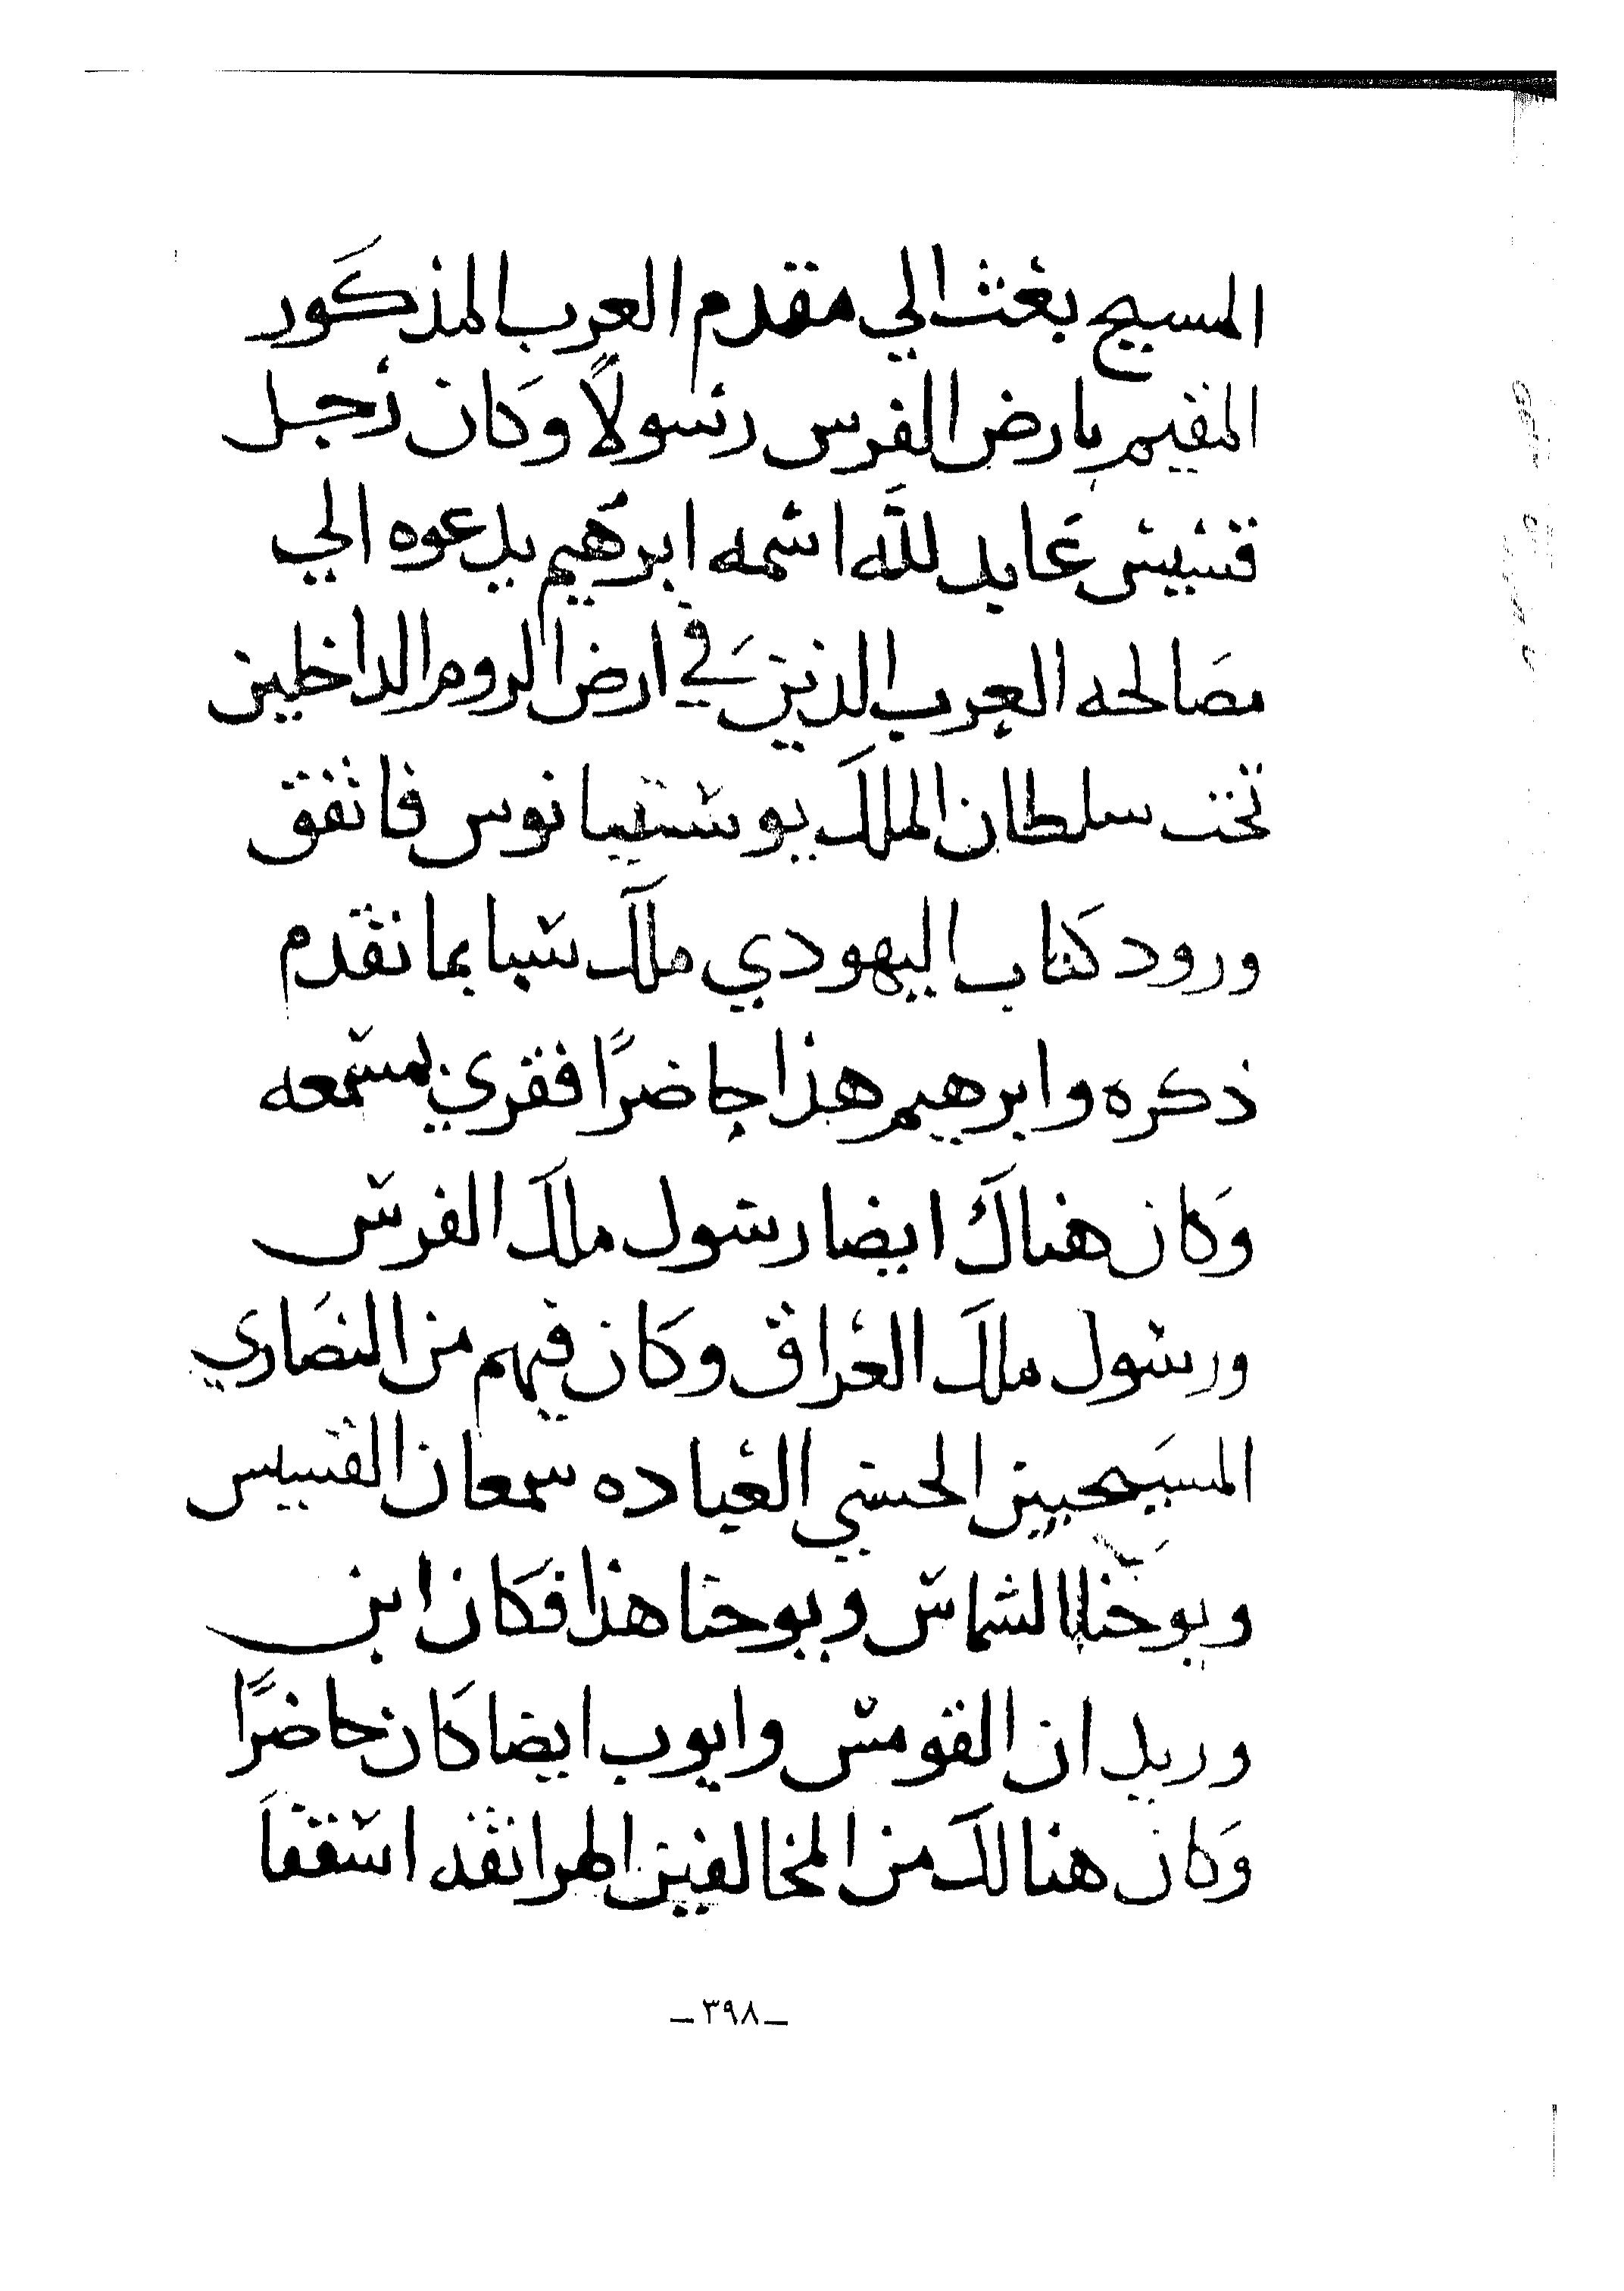 المسيح بعث الي مقدم العرب المذكور
المقيم بارض الفرس رسولاً وكان رجل
قسيس عابد لله اسمه ابرهيم يدعوه الي
مصالحه العرب الذين في ارض الروم الداخلين
تحت سلطان الملك يوستنيانوس فاتفق
ورود كتاب اليهودي ملك سبا بما تقدم
ذكره وابرهيم هذا حاضرًا فقري بمسمعه
وكان هناك ايضا رسول ملك الفرس
ورسول ملك العراق وكان فيهم من النصاري
المسيحيين الحسني العباده سمعان القسيس
ويوحنا الشماس ويوحنا هذا فكان ابن
وريدان القومس وايوب ايضا كان حاضرًا
وكان هنالك من المخالفين الهراتقه اسقفاً
_٣٩٨_